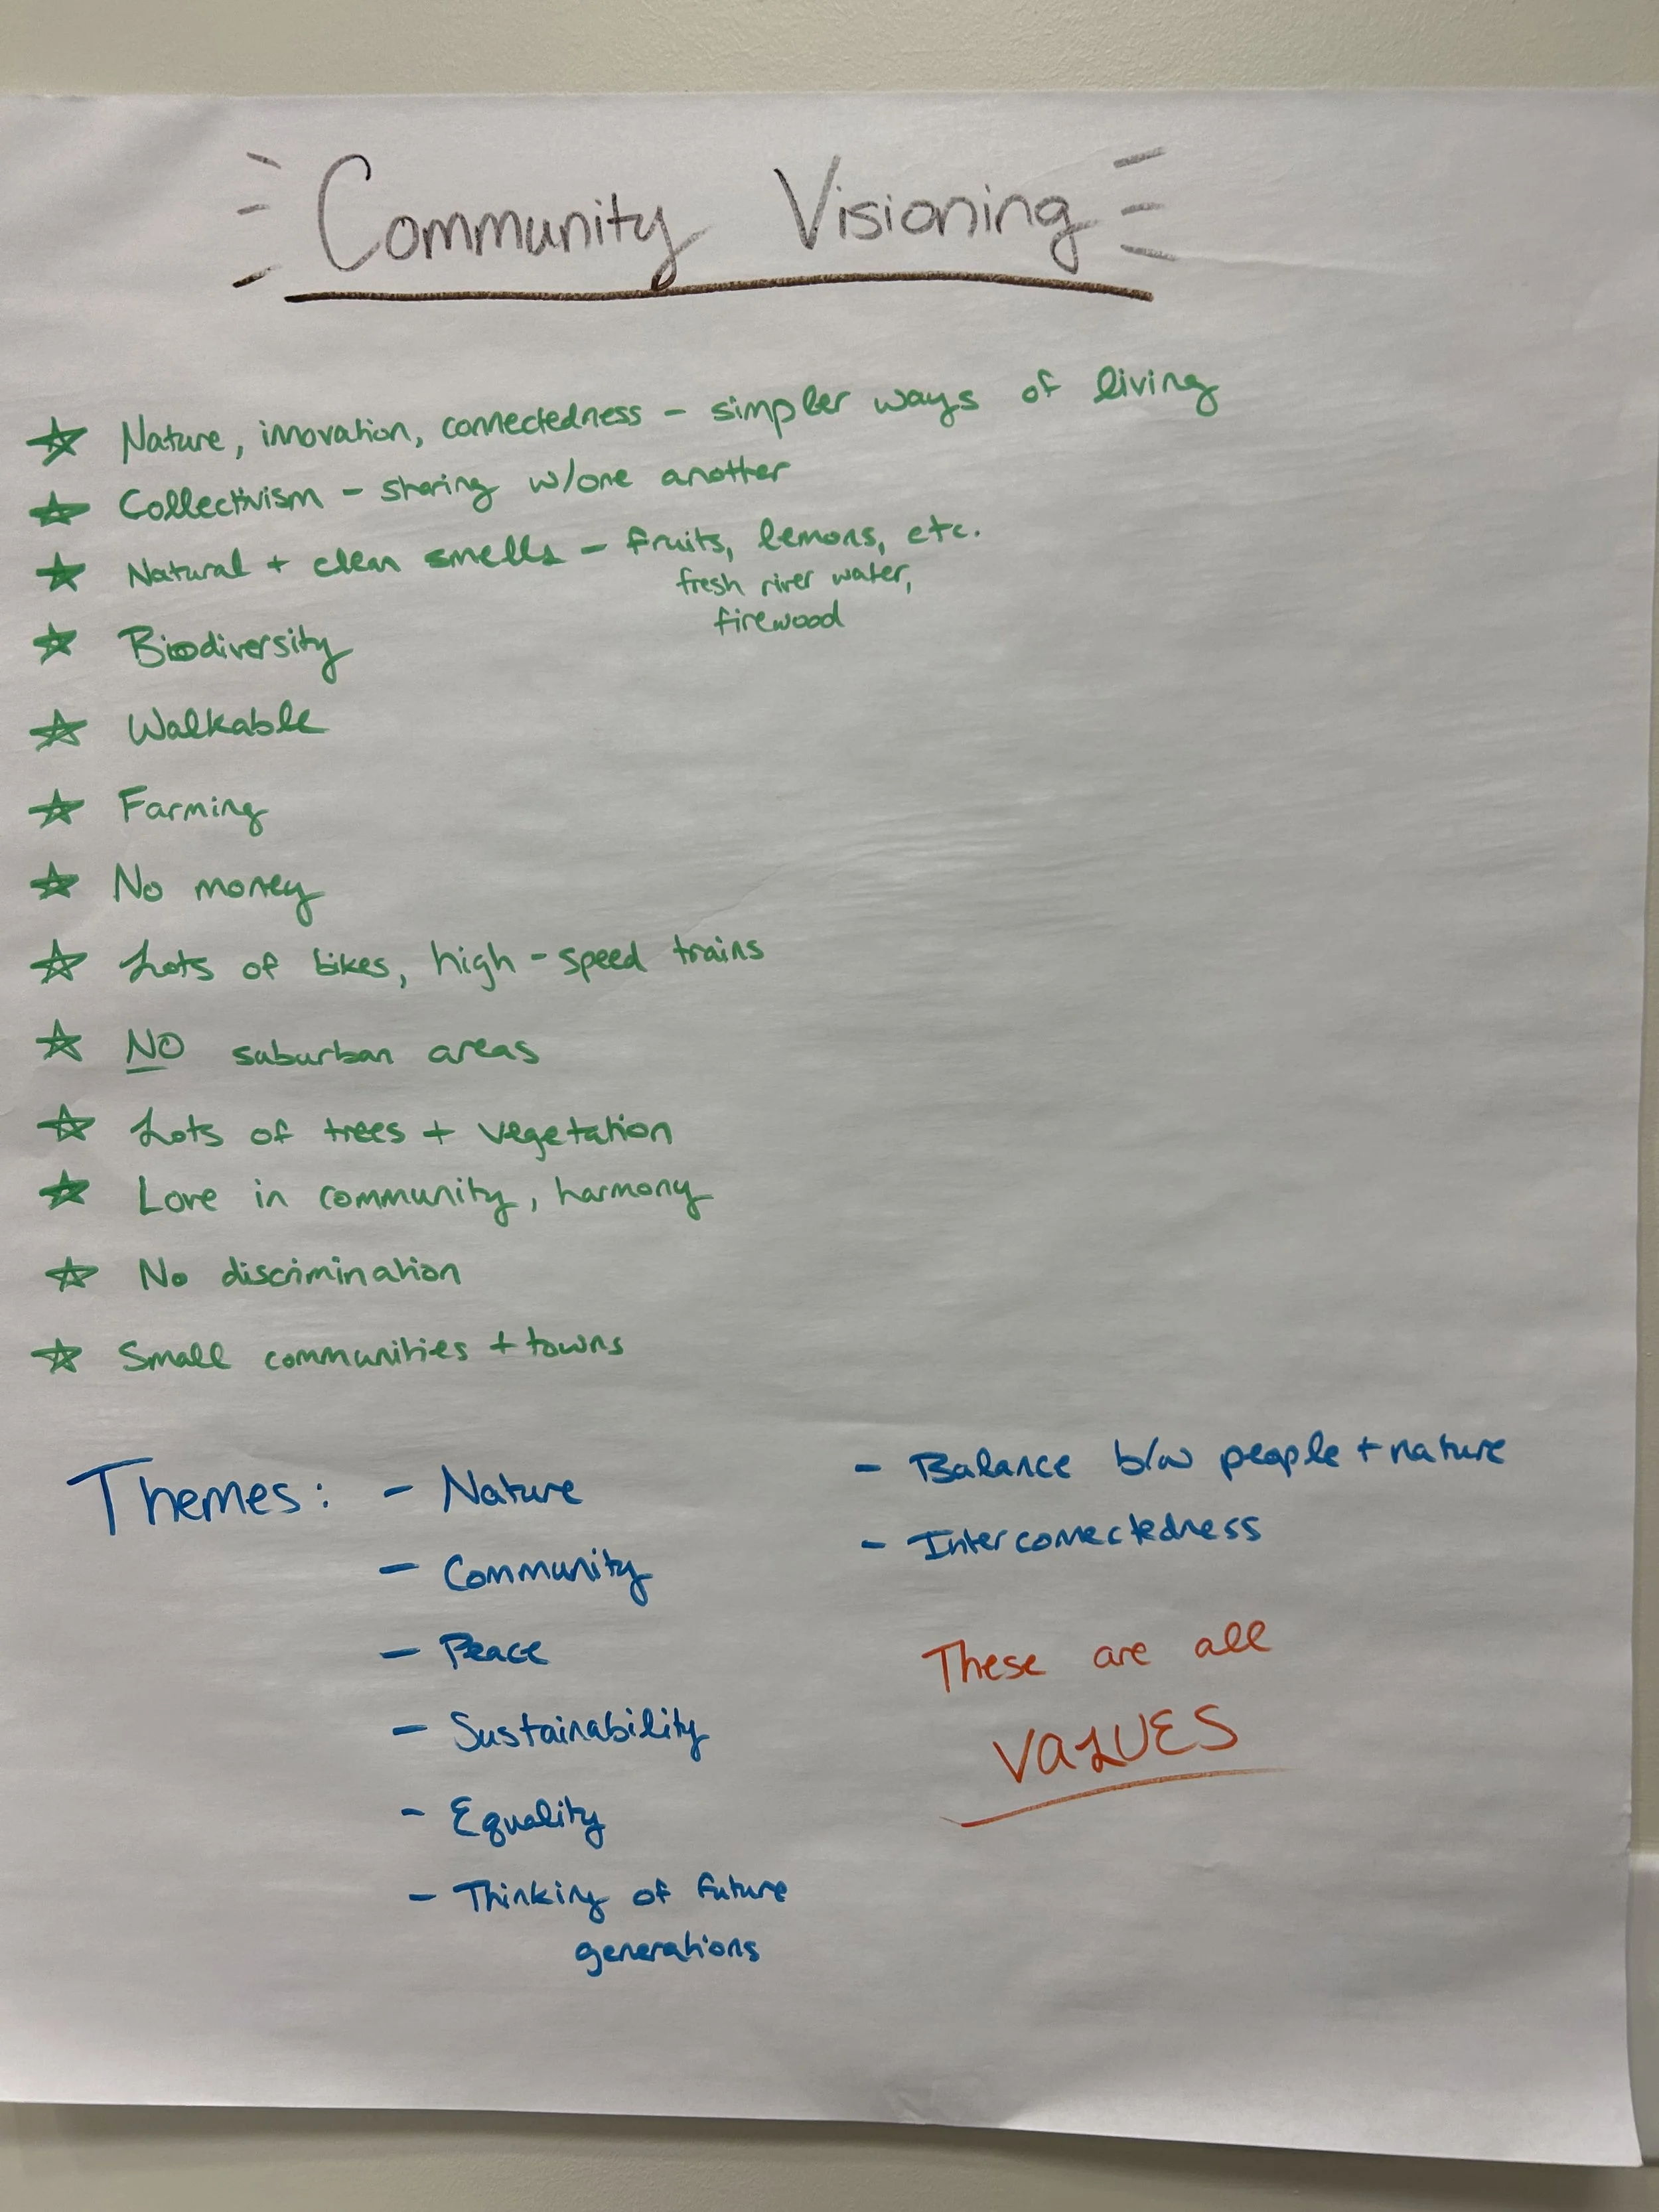 Community Visioning
Nature, innovation, connectedness - simpler ways of living
Collectivism - sharing w/one another
Natural + clean smells - fruits, lemons, etc.
fresh river water,
firewood
Biodiversity
Walkable
Farming
No money
Lots of bikes, high-speed trains
NO suburban areas
Lots of trees + vegetation
Love in community, harmony
No discrimination
Small communities + towns
Themes: - Nature
- Community
- Peace
- Sustainability
- Equality
- Thinking of future
generations
- Balance b/w people + nature
- Interconnectedness
These are all
VALUES